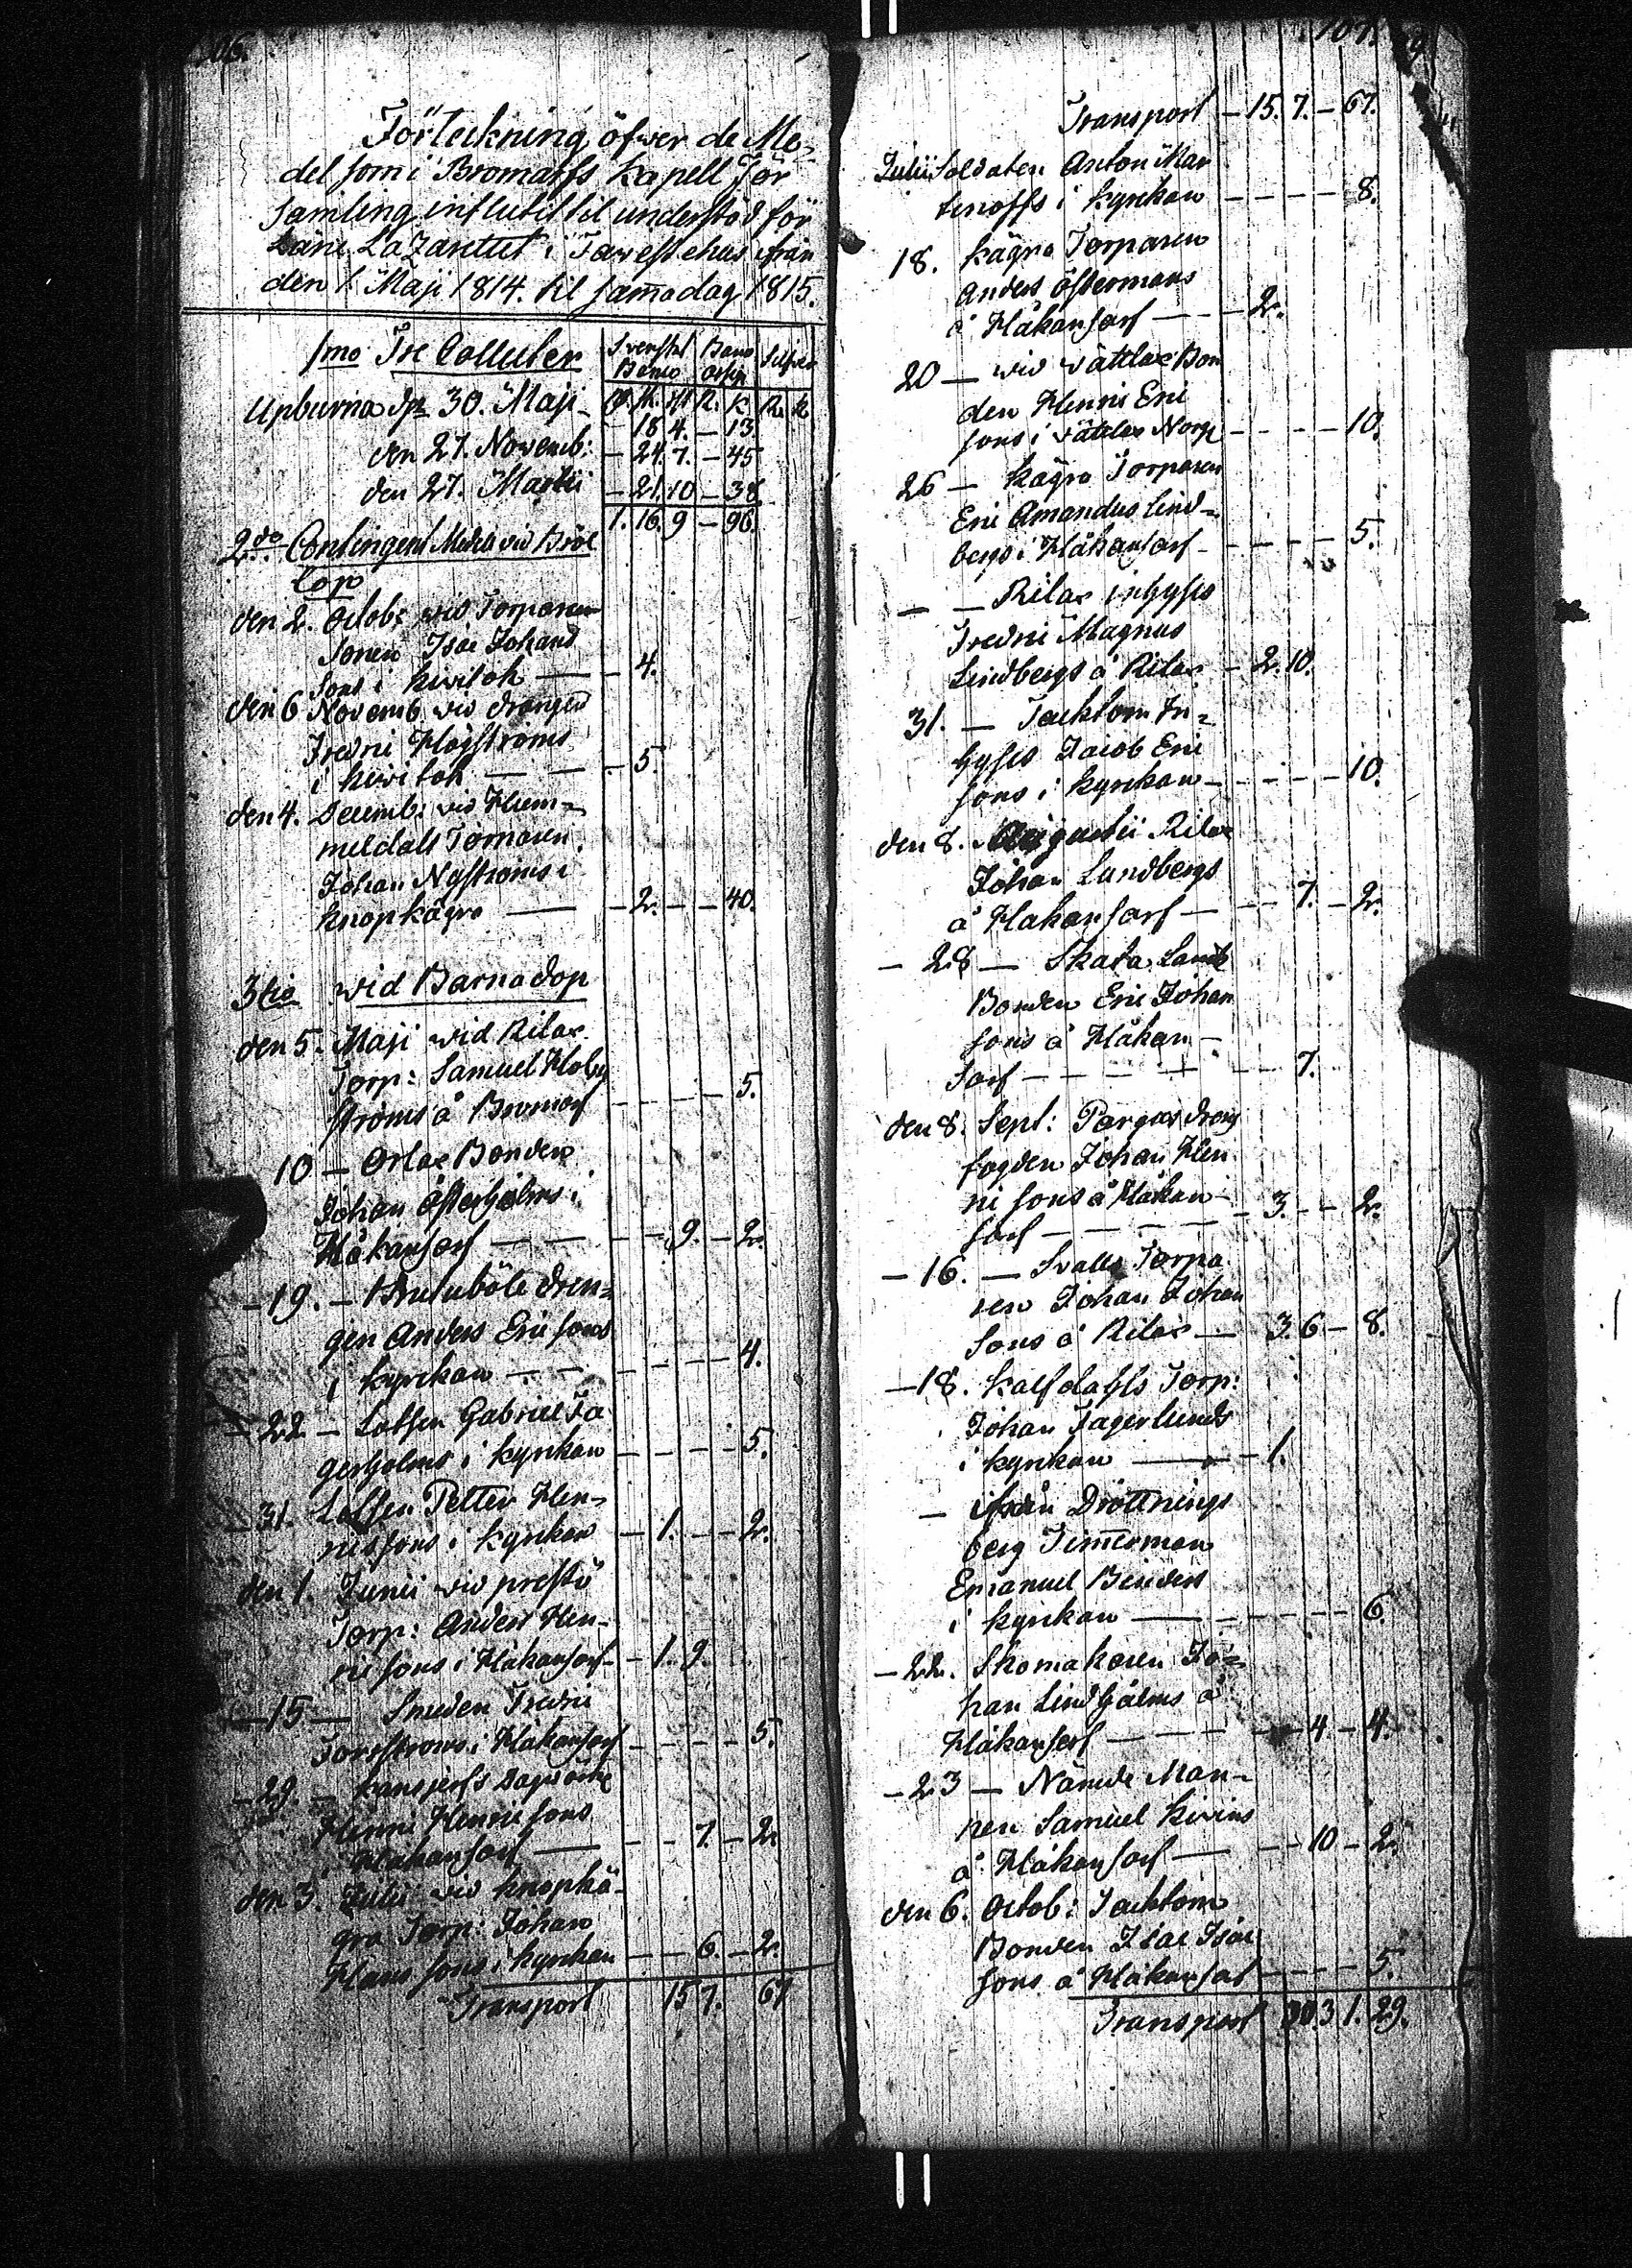 106.
Förteckning öfwer de Me-
del som i Bromarfs Kapell För
samling influtit til understöd för
Läns Lazarettet i Tavestehus ifrån
den 1. Maji 1814. til samma dag 1815.
1mo Tre Collecter
Svenskt Banco | Banco Assign | Silfver
R. sk. rst R. K. R. K
Upburna d. 30. Maji - 18 4. - 13
den 27. Novemb: - 24. 7. - 45
den 27. Martii - 21. 10 - 38
1. 16. 9 - 96.
2do Contingent Medel vid Bröl
lop
den 2. Octob: vid Torparen
Sonen Isac Johans
sons i Kivitok — - 4.
den 6 Novemb. vid drängen
Fredric Högströms
i Kivitok — — - 5.
den 4. Decemb: vid Hum-
meldals Torparen
Johan Nyströms i
Knopkägra — - 2. - - 40.
3tio vid Barnadop
den 5. Maji vid Rilax
Torp: Samuel Holm
ströms å Bromarf - - - - 5.
10 — Orlax Bonden
Johan Österholms i
Håkansarf — — - - 9. - 2.
- 19. - Bruluböle drän-
gen Anders Ericsons
i Kyrckan - - - - - - 4.
- 22 - Lotsen Gabriel Fa
gerholms i Kyrkan - - - - 5.
- 31. Lotsen Petter Hen-
ricsons i Kyrkan - 1. - - 2.
den 1. Junii vid prestö
Torp: Anders Hen-
ricsons i Håkansarf - 1. 9.
- 15 — Smeden Fredric
Forsströms i Håkansarf - - - - 5.
- 29. -
Henric Henricsons
i Håkansarf — - - 7. - 2.
den 3. Julii vid Knopkä-
gra Torp: Johan
Hanssons i Kyrckan - - 6. - 2.
Transport 15 7. 67
107.
Transport - 15. 7. - 67.
Julii Soldaten Anton Mar
tinoffs i Kyrckan - - - - 8.
18. Kägra Torparen
Anders Östermans
å Håkansarf — - 2.
20 — vid Vättlax Bon
den Henric Eric
sons i Vättlax Norrg - - - - 10.
26 — Kägra Torparen
Eric Amandus Lind-
bergs i Håkansarf - - - - - 5.
- — Rilax inhyses
Fredric Magnus
Lindbergs å Rilax - 2. 10.
31. — Tacktom In-
hyses Jacob Eric
sons i Kyrckan - - - - - 10.
den 8. Augustii Rilax
Johan Lundbergs
å Håkansarf — - - 7. - 2.
- 28 — Skata Lands
Bonden Eric Johan
sons å Håkan-
sarf - - - - - - - 7.
den 8. Sept: Pargas dräng
fogden Johan Hen
ricsons å Håkan-
sarf - - - - - 3. - - 2.
- 16. — Svalls Torpa
ren Johan Johan
sons å Rilax — 3. 6 - 8.
- 18. Torp:
Johan Fagerlunds
i Kyrckan — - 1.
- ifrån Drottnings
berg Timerman
Emanuel
i Kyrckan — - - - - - 6.
- 22. Skomakaren Jo-
han Lindholms å
Håkansarf - - - - - 4 - 4.
- 23 — Nämde Man-
nen Samuel Kivins
å Håkansarf — - - 10 - 2.
den 6. Octob: Tacktom
Bonden Isac Isac
sons å Håkansarf - - - - 5.
Transport 30 3 1. 29.